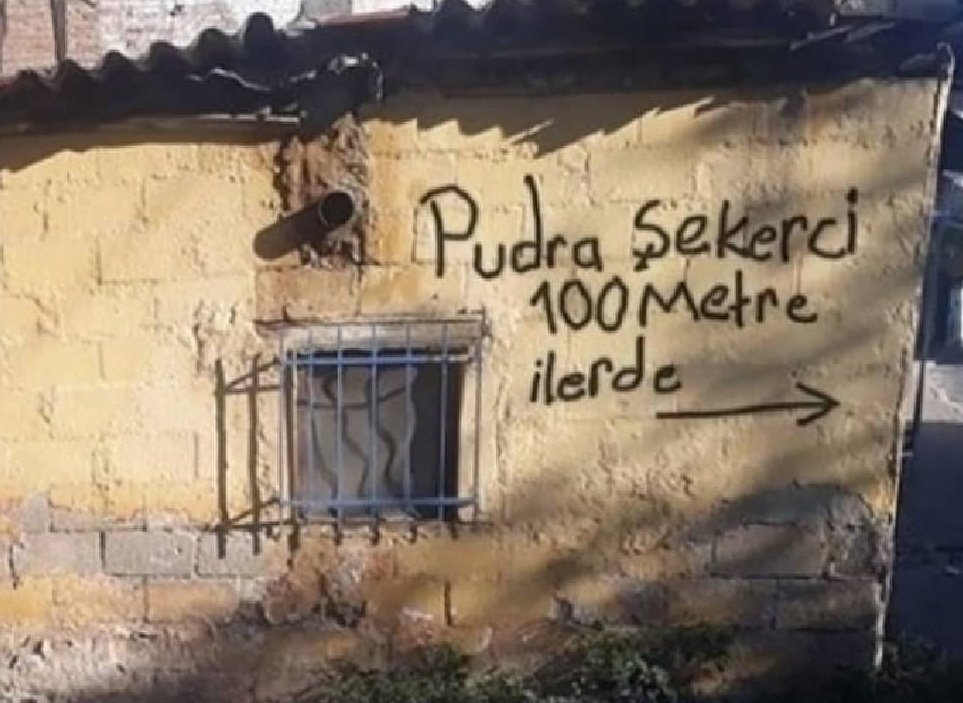 Pudra Şekerci
100 Metre
ilerde